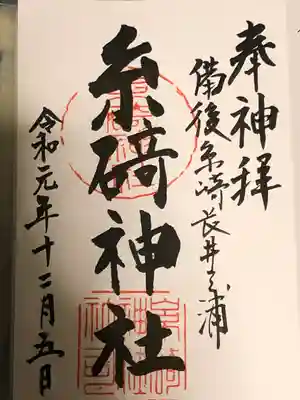 奉神拜
備後糸崎長井之浦
糸碕神社
令和元年十二月五日